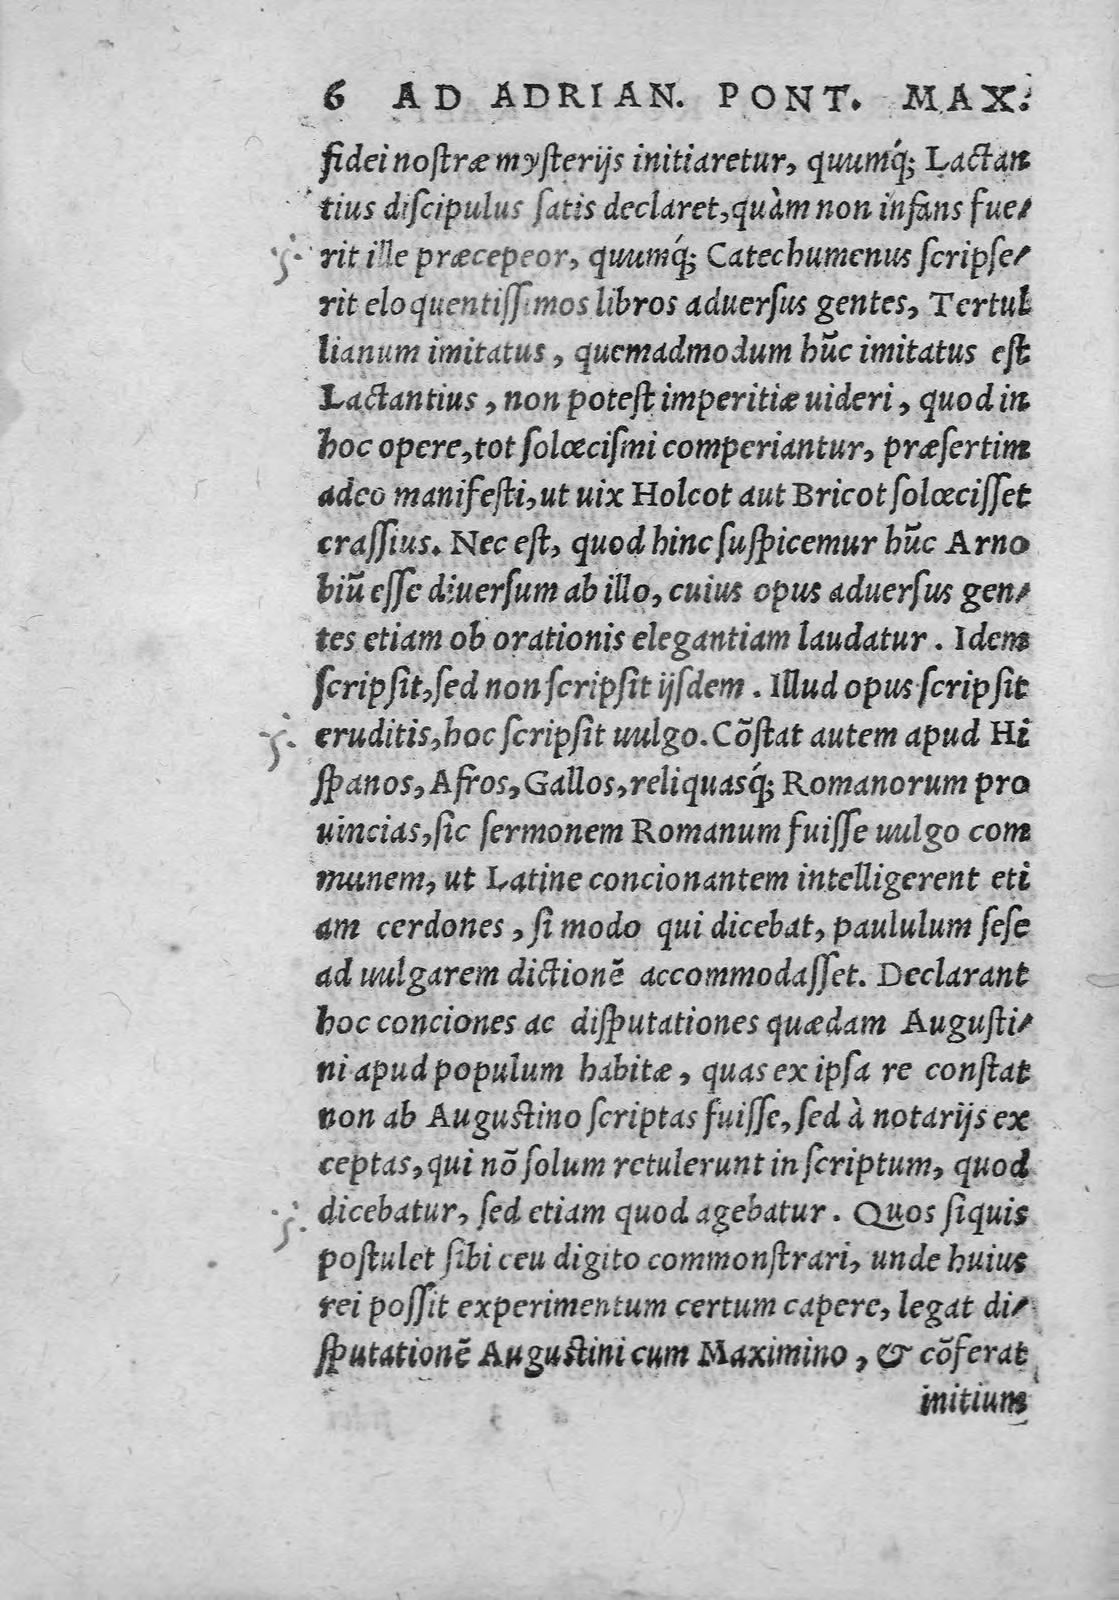 6 AD ADRIAN. PONT. MAX.
fidei noſtræ myſterijs initiaretur, quumq́; Lactan
tius diſcipulus ſatis declaret, quàm non infans fue⸗
rit ille præcepeor, quumq́; Catechumenus ſcripſe⸗
rit eloquentiſſimos libros aduerſus gentes, Tertul
lianum imitatus, quemadmodum hūc imitatus eſt
Lactantius, non poteſt imperitiæ uideri, quod in
hoc opere, tot ſolœciſmi comperiantur, præſertim
adeo manifeſti, ut uix Holcot aut Bricot ſolœciſſet
craſſius. Nec eſt, quod hinc ſuſpicemur hūc Arno
biū eſſe diuerſum ab illo, cuius opus aduerſus gen⸗
tes etiam ob orationis elegantiam laudatur. Idem
ſcripſit, ſed non ſcripſit ijſdem. Illud opus ſcripſit
eruditis, hoc ſcripſit uulgo. Cōſtat autem apud Hi
ſpanos, Afros, Gallos, reliquasq́; Romanorum pro
uincias, ſic ſermonem Romanum fuiſſe uulgo com
munem, ut Latine concionantem intelligerent eti
am cerdones, ſi modo qui dicebat, paululum ſeſe
ad uulgarem dictionē accommodaſſet. Declarant
hoc conciones ac diſputationes quædam Auguſti⸗
ni apud populum habitæ, quas ex ipſa re conſtat
non ab Auguſtino ſcriptas fuiſſe, ſed à notarijs ex
ceptas, qui nō ſolum retulerunt in ſcriptum, quod
dicebatur, ſed etiam quod agebatur. Quos ſiquis
poſtulet ſibi ceu digito commonſtrari, unde huius
rei poſſit experimentum certum capere, legat di⸗
ſputationē Auguſtini cum Maximino, & cōferat
initium